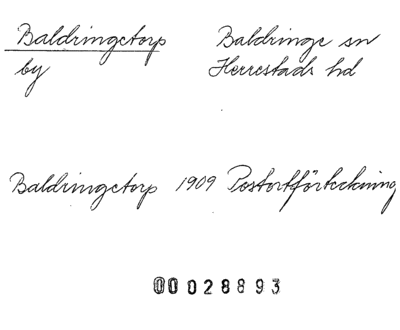 Baldringetorp Baldringe sn
by Herrestads hd
Baldringetorp 1909 Postortförteckning
00028893